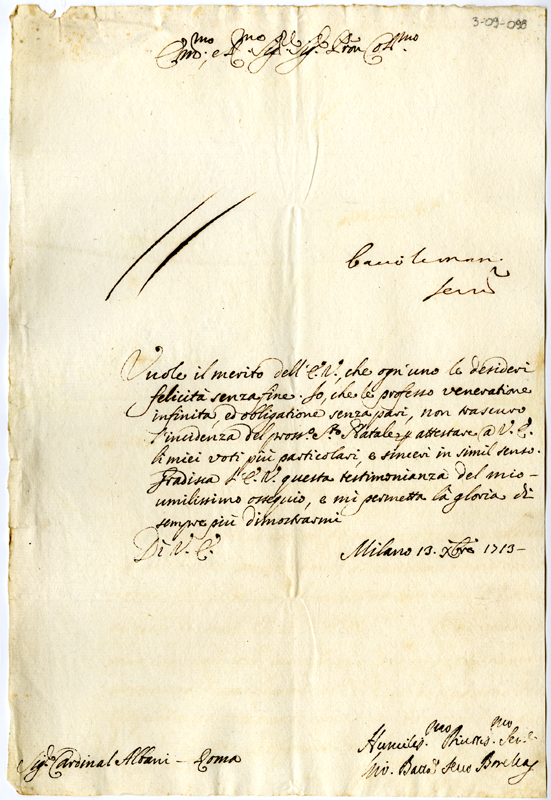 3-09-098
Em.mo, e R.mo Sig.r Sig.r Pron Coll.mo
Vuole il merito dell'E.V., che ogn'uno le desideri
felicità senza fine. Io, che le professo veneratione
infinita, ed obligatione senza pari, non trascuro
l'incidenza del pross.o S.to Natale p attestare a V.E.
li miei voti più particolari, e sinceri in simil senso.
Gradisca l'E.V. questa testimonianza del mio
umilissimo ossequio, e mi permetta la gloria di
sempre più dimostrarmi
Di V.E.
Milano 13. Xbre 1713-
Humiliss.mo Ser.e
Sig.r Cardinal Albani - Roma
Gio. Batt.a